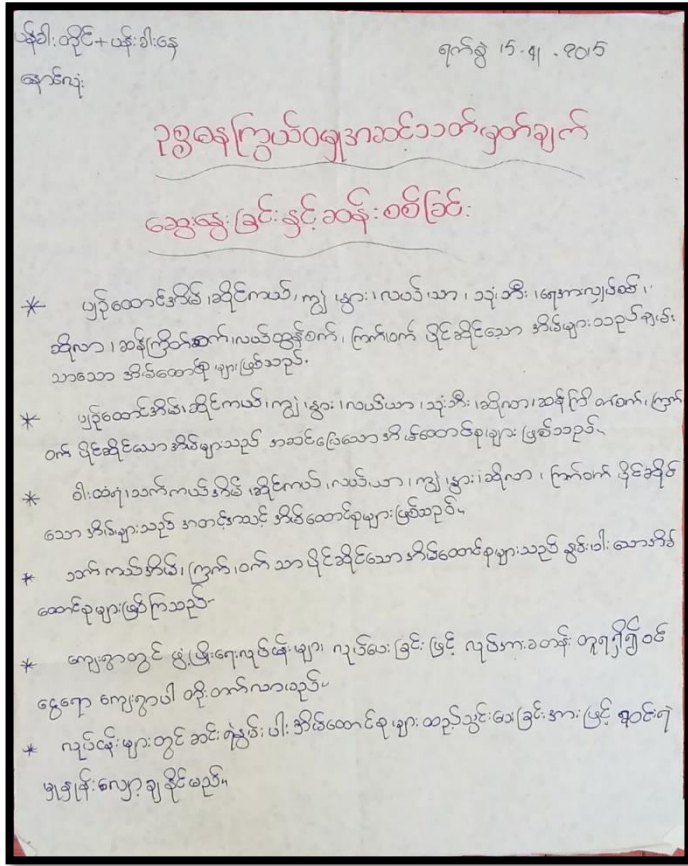 ပန်ခါးတိုင်+ပန်းခါးနေ
ရက်စွဲ ၁၅.၅၊.၂၀၁၅
နောင်လုံး
ဥစ္စဓနကြွယ်ဝမှုအဆင့်သတ်မှတ်ချက်
ဆွေးနွေးခြင်းနှင့်ဆန်းစစ်ခြင်း
* ပျဉ်ထောင်အိမ်၊ဆိုင်ကယ်၊ကျွဲ၊နွား၊လယ်ယာ၊သုံးဘီး၊ရေအားလျှပ်စစ်၊
ဆိုလာ၊ဆန်ကြိတ်စက်၊လယ်ထွန်စက်၊ကြက်၊ဝက် ပိုင်ဆိုင်သော အိမ်များသည်ချမ်း
သာသော အိမ်ထောင်စုများဖြစ်သည်။
* ပျဉ်ထောင်အိမ်၊ဆိုင်ကယ်၊ကျွဲ၊နွား၊လယ်ယာ၊သုံးဘီး၊ဆိုလာ၊ဆန်ကြိတ်စက်၊ကြက်
ဝက် ပိုင်ဆိုင်သောအိမ်များသည် အဆင်ပြေသောအိမ်ထောင်စုများ ဖြစ်သည်။
* ဝါးထရံ၊သက်ကယ်အိမ်၊ဆိုင်ကယ်၊လယ်ယာ၊ကျွဲ၊နွား၊ဆိုလာ၊ကြက်ဝက် ပိုင်ဆိုင်
သော အိမ်များသည် အတင့်အသင့် အိမ်ထောင်စုများဖြစ်သည်။
* သက်ကယ်အိမ်၊ကြက်၊ဝက်သာ ပိုင်ဆိုင်သောအိမ်ထောင်စုများသည် နွမ်းပါးသောအိမ်
ထောင်စုများဖြစ်ကြသည်။
* ကျေးရွာတွင် ဖွံ့ဖြိုးရေးလုပ်ငန်းများ လုပ်ပေးခြင်းဖြင့် လုပ်အားခတန်းတူရရှိ၍ဝင်
ငွေရော ကျေးရွာပါ တိုးတက်လာသည်။
* လုပ်ငန်းများတွင် ဆင်းရဲနွမ်းပါးအိမ်ထောင်စုများထည့်သွင်းပေးခြင်းအားဖြင့် ဆင်းရဲ
မှုနှုန်းလျှော့ချနိုင်မည်။